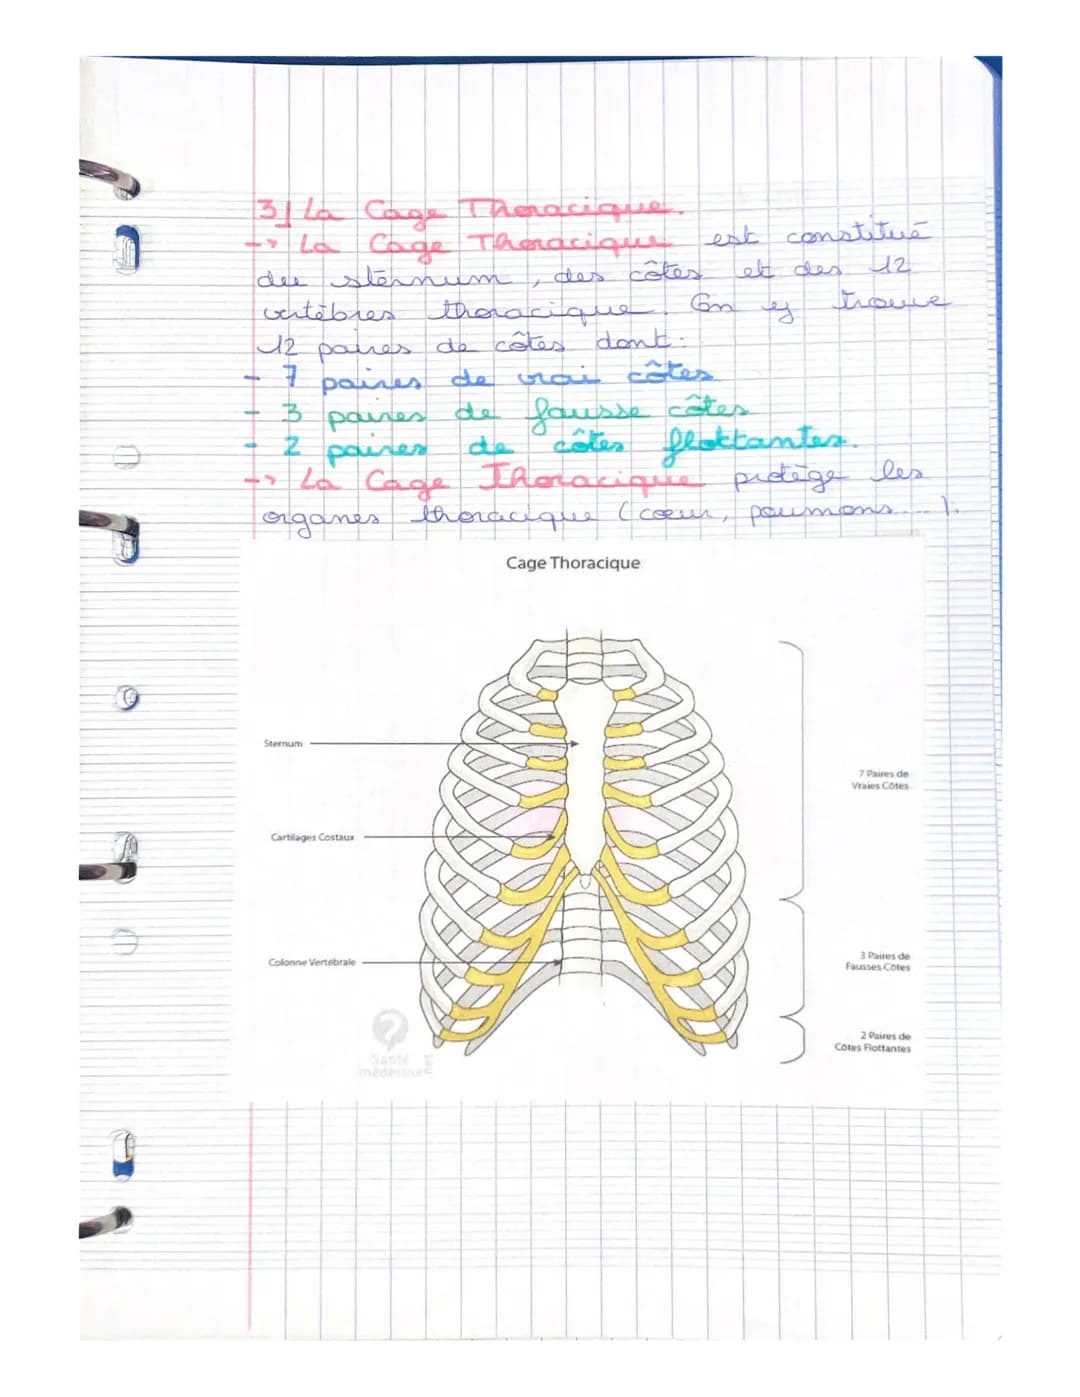 3] La Cage Thoracique.
-> La Cage Thoracique est constitué
du sternum, des côtes et des 12
vertèbres thoracique. On y trouve
12 paires de côtes dont:
- 7 paires de vrai côtes
- 3 paires de fausse côtes
- 2 paires de côtes flottantes.
-> La Cage Thoracique protège les
organes thoracique (coeur, poumons...).
Cage Thoracique
Sternum
7 Paires de
Vraies Côtes
Cartilages Costaux
Colonne Vertébrale
3 Paires de
Fausses Côtes
2 Paires de
Côtes Flottantes
Santé
médecine